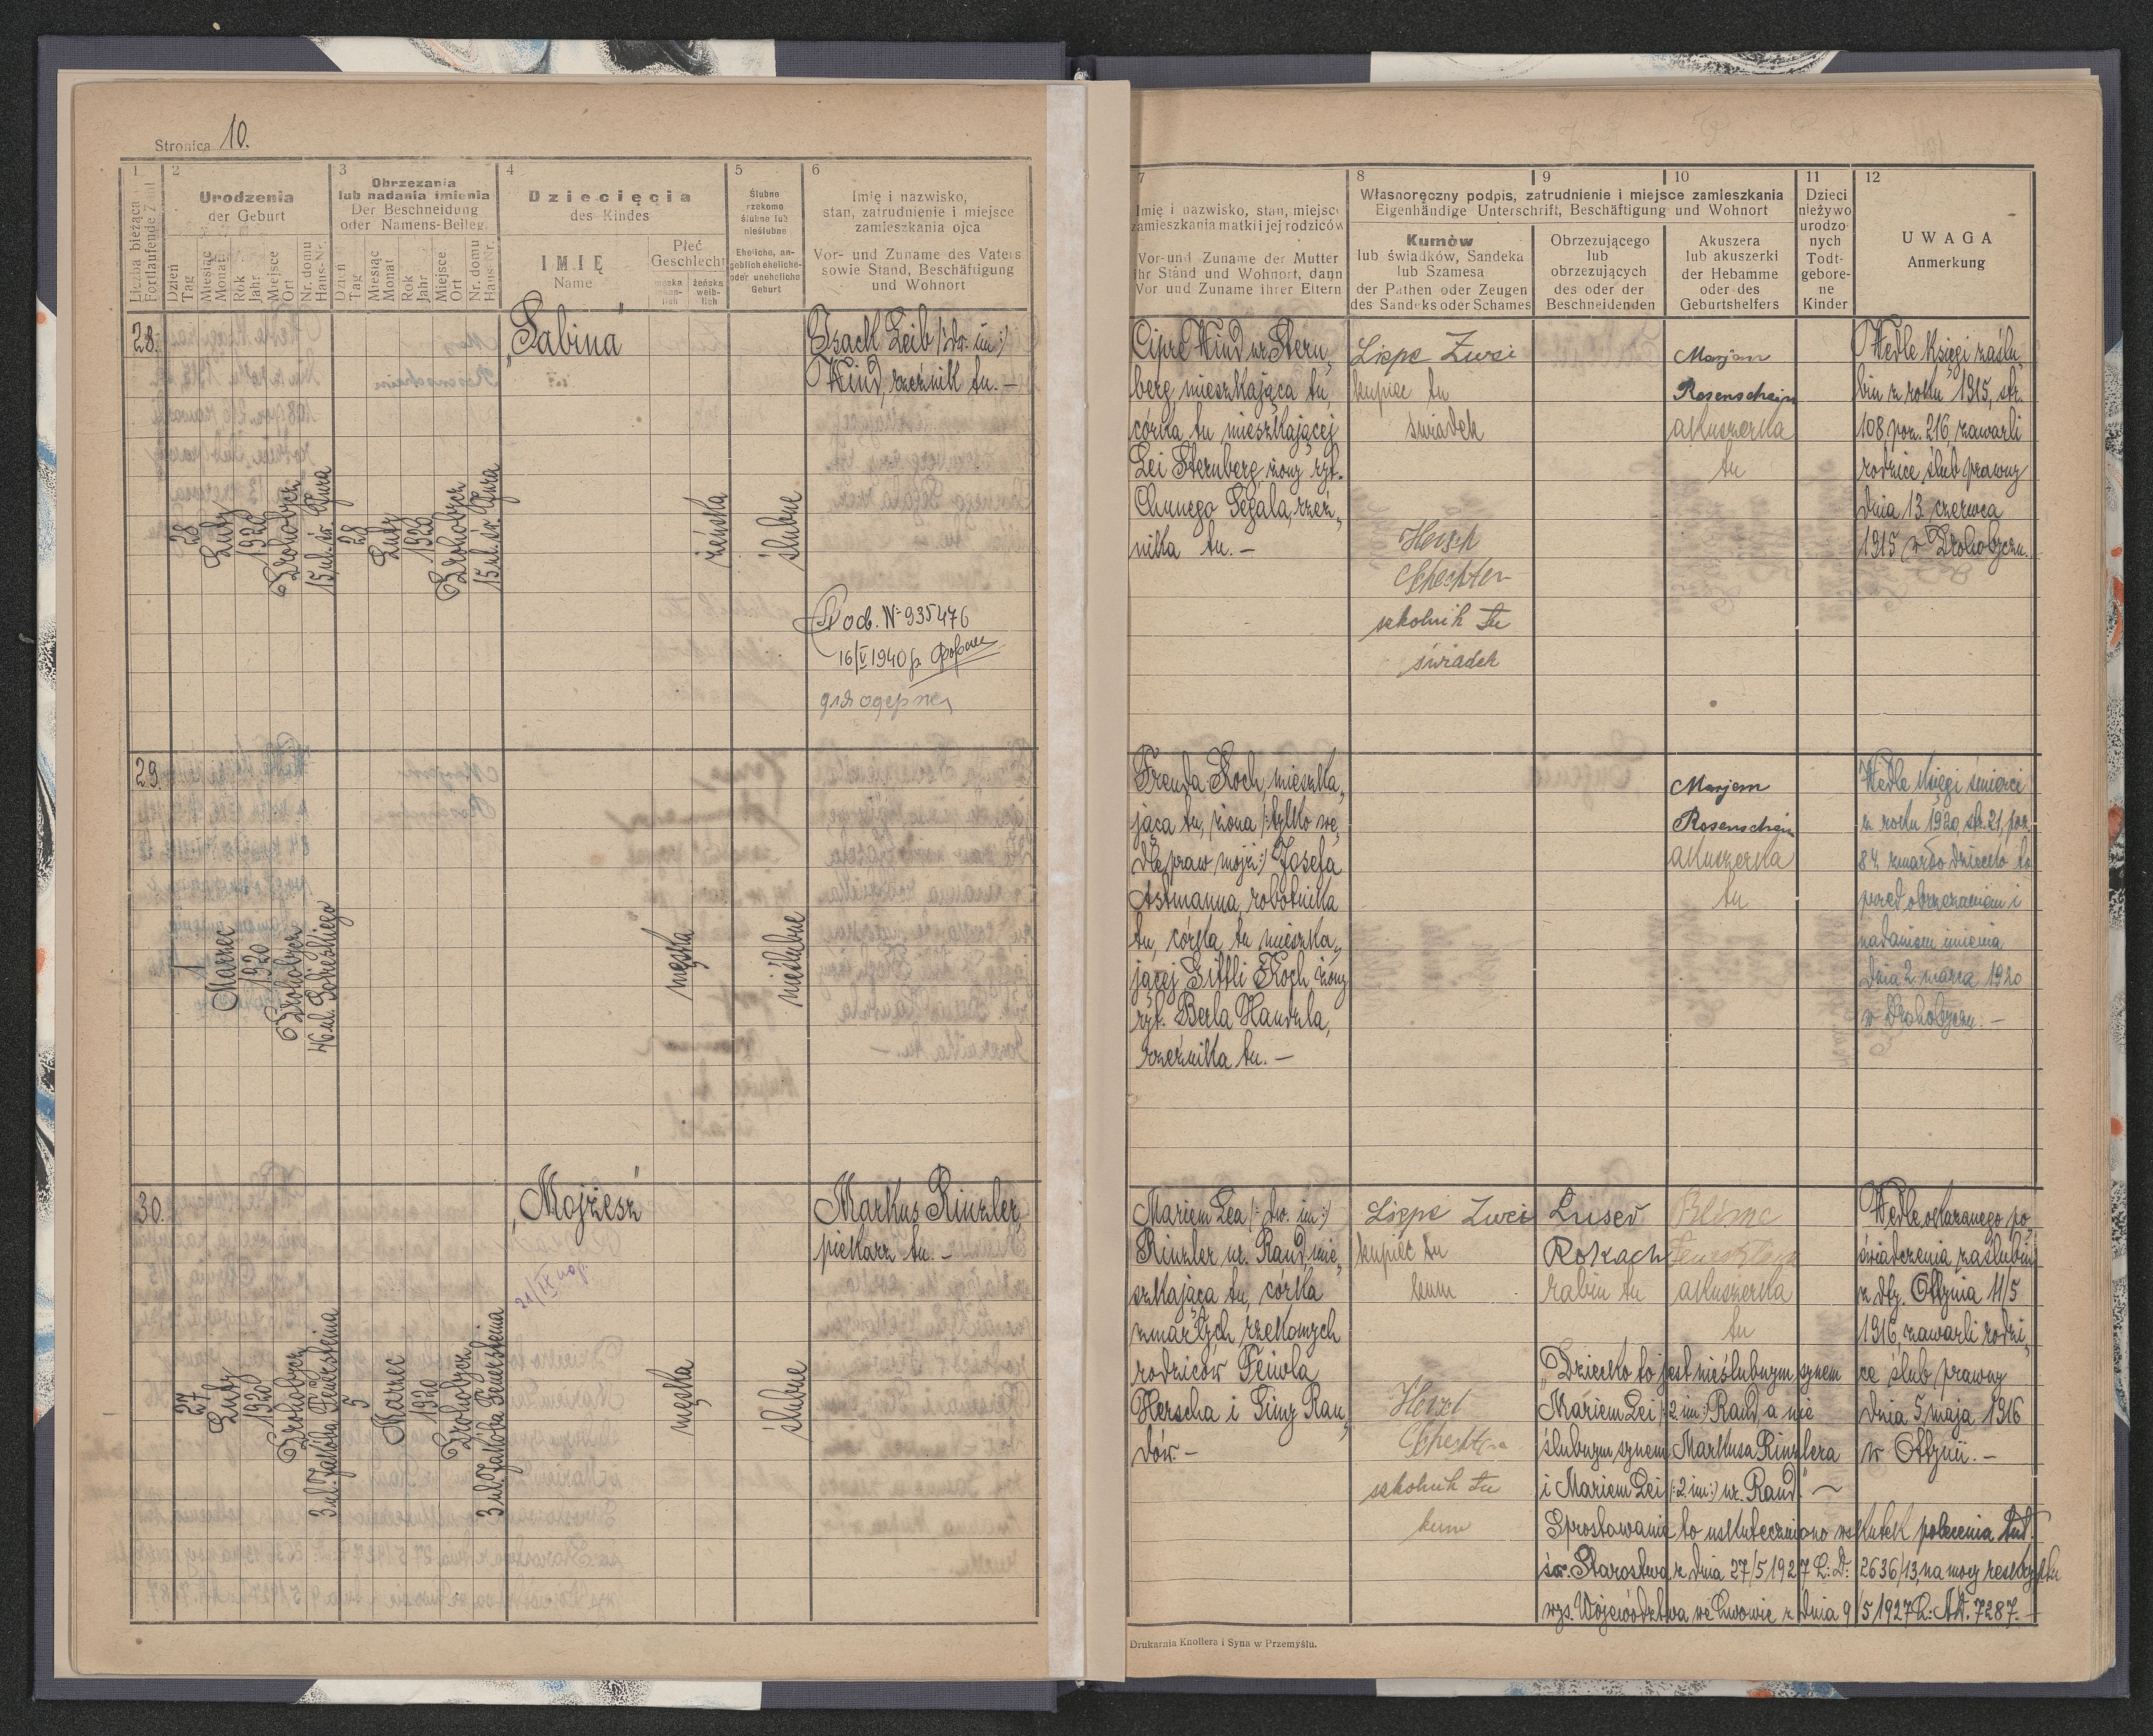 Stronica 10.
1
2
3
4
5
6
Liczba bieżąca
Fortlaufende Zahl
Urodzenia
der Geburt
Obrzezania
lub nadania imienia
Der Beschneidung
oder Namens-Beileg.
Dziecięcia
des Kindes
Ślubne
rzekomo
ślubne lub
nieślubne
Eheliche, an-
geblich eheliche-
oder uneheliche
Geburt
Imię i nazwisko,
stan, zatrudnienie i miejsce
zamieszkania ojca
Vor- und Zuname des Vaters
sowie Stand, Beschäftigung
und Wohnort
Dzień
Tag
Miesiąc
Monat
Rok
Jahr
Miejsce
Ort
Nr. domu
Haus-Nr.
Dzień
Tag
Miesiąc
Monat
Rok
Jahr
Miejsce
Ort
Nr. domu
Haus-Nr.
IMIĘ
Name
Płeć
Geschlecht
męska
männ-
lich
żeńska
weib-
lich
28.
28
Luty
1920
Drohobycz
15 ul. św. Jura
28
Luty
1920
Drohobycz
15 ul. św. Jura
„Sabina"
żeńska
ślubne
Izaak Leib /:dw. im:/
Wind, rzeźnik tu. —
№ 935476
16/V 1940 р.
29.
1
Marzec
1920
Drohobycz
46 ul. Sobieskiego
męska
nieślubne
30.
27
Luty
1920
Drohobycz
3 ul. Jakóba Feuersteina
5
Marzec
1920
Drohobycz
3 ul. Jakóba Feuersteina
„Mojżesz"
21/IX
męska
ślubne
Markus Rinzler,
piekarz tu. -
7
8
9
10
11
12
Imię i nazwisko, stan, miejsce
zamieszkania matki i jej rodziców
Vor-und Zuname der Mutter
ihr Stand und Wohnort, dann
Vor und Zuname ihrer Eltern
Własnoręczny podpis, zatrudnienie i miejsce zamieszkania
Eigenhändige Unterschrift, Beschäftigung und Wohnort
Kumów
lub świadków, Sandeka
lub Szamesa
der Pathen oder Zeugen
des Sandeks oder Schames
Obrzezującego
lub
obrzezujących
des oder der
Beschneidenden
Akuszera
lub akuszerki
der Hebamme
oder des
Geburtshelfers
Dzieci
nieżywo
urodzo-
nych
Todt-
gebore-
ne
Kinder
UWAGA
Anmerkung
Cipre Wind ur. Stern„
berg mieszkająca tu,
córka tu mieszkającej
Lei Sternberg, żony ryt.
Chunego Segala, rzeź„
nika tu. —
Lippe Zwei
kupiec tu
świadek
Hersch
Schechter
szkolnik tu
świadek
Marjem
Rosenschein
akuszerka
tu
Wedle księgi zaślu„
bin z roku 1915, str.
108 poz. 216 zawarli
rodzice ślub prawny
dnia 13. czerwca
1915 w Drohobyczu.
Freuda Koch, mieszka„
jąca tu, żona /:tylko we„
dle praw mojż:/ Josefa
Astmanna, robotnika
tu, córka tu mieszka„
jącej Gittli Koch, żony
ryt. Berla Handzla,
rzeźnika tu. —
Marjem
Rosenschein
akuszerka
tu
Wedle księgi śmierci
z roku 1920, str. 21, poz.
84 zmarło dziecko to
przed obrzezaniem i
nadaniem imienia
dnia 2. marca 1920
w Drohobyczu. —
Mariem Lea /:dw. im:/
Rinzler ur. Rand, mie„
szkająca tu, córka
zmarłych rzekomych
rodziców Feiwla
Herscha i Simy Ran„
dów. —
Lippe Zwei
kupiec tu
kum
Hersch
Schechter
szkolnik tu
kum
Luser
Rokach
rabin tu
akuszerka
tu
Wedle okazanego po„
świadczenia zaślubin
z dtg. Ottynia 11/5
1916, zawarli rodzi„
ce ślub prawny
dnia 5. maja 1916
w Ottynii. —
„Dziecko to jest nieślubnym synem
Mariem Lei /:2 im:/ Rand, a nie
ślubnym synem Markusa Rinzlera
i Mariem Lei /:2 im:/ ur. Rand." —
Sprostowanie to uskuteczniono wskutek polecenia tut.
św. Starostwa z dnia 27/5 1927 L: D: 2636/13, na mocy reskryptu
wys. Województwa we Lwowie z dnia 9/5 1927 L: AD. 7287. —
Drukarnia Knollera i Syna w Przemyślu.